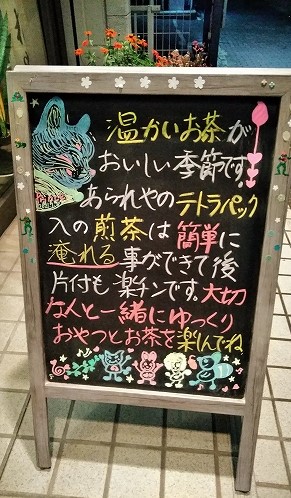 温かいお茶が
おいしい季節です
あられやのテトラパック
入の煎茶は簡単に
淹れる事ができて後
片付も楽チンです。大切
な人と一緒にゆっくり
おやつとお茶を楽んでね